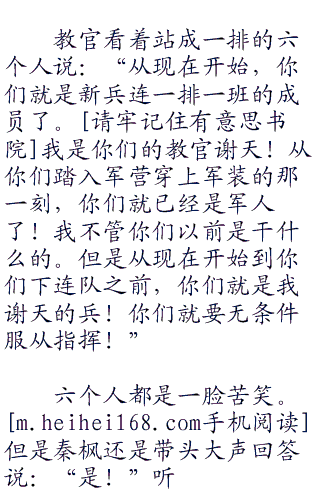 教官看着站成一排的六
个人说：“从现在开始，你
们就是新兵连一排一班的成
员了。[请牢记住有意思书
院]我是你们的教官谢天！从
你们踏入军营穿上军装的那
一刻，你们就已经是军人
了！我不管你们以前是干什
么的。但是从现在开始到你
们下连队之前，你们就是我
谢天的兵！你们就要无条件
服从指挥！”
六个人都是一脸苦笑。
[m.heihei168.com手机阅读]
但是秦枫还是带头大声回答
说：“是！”听